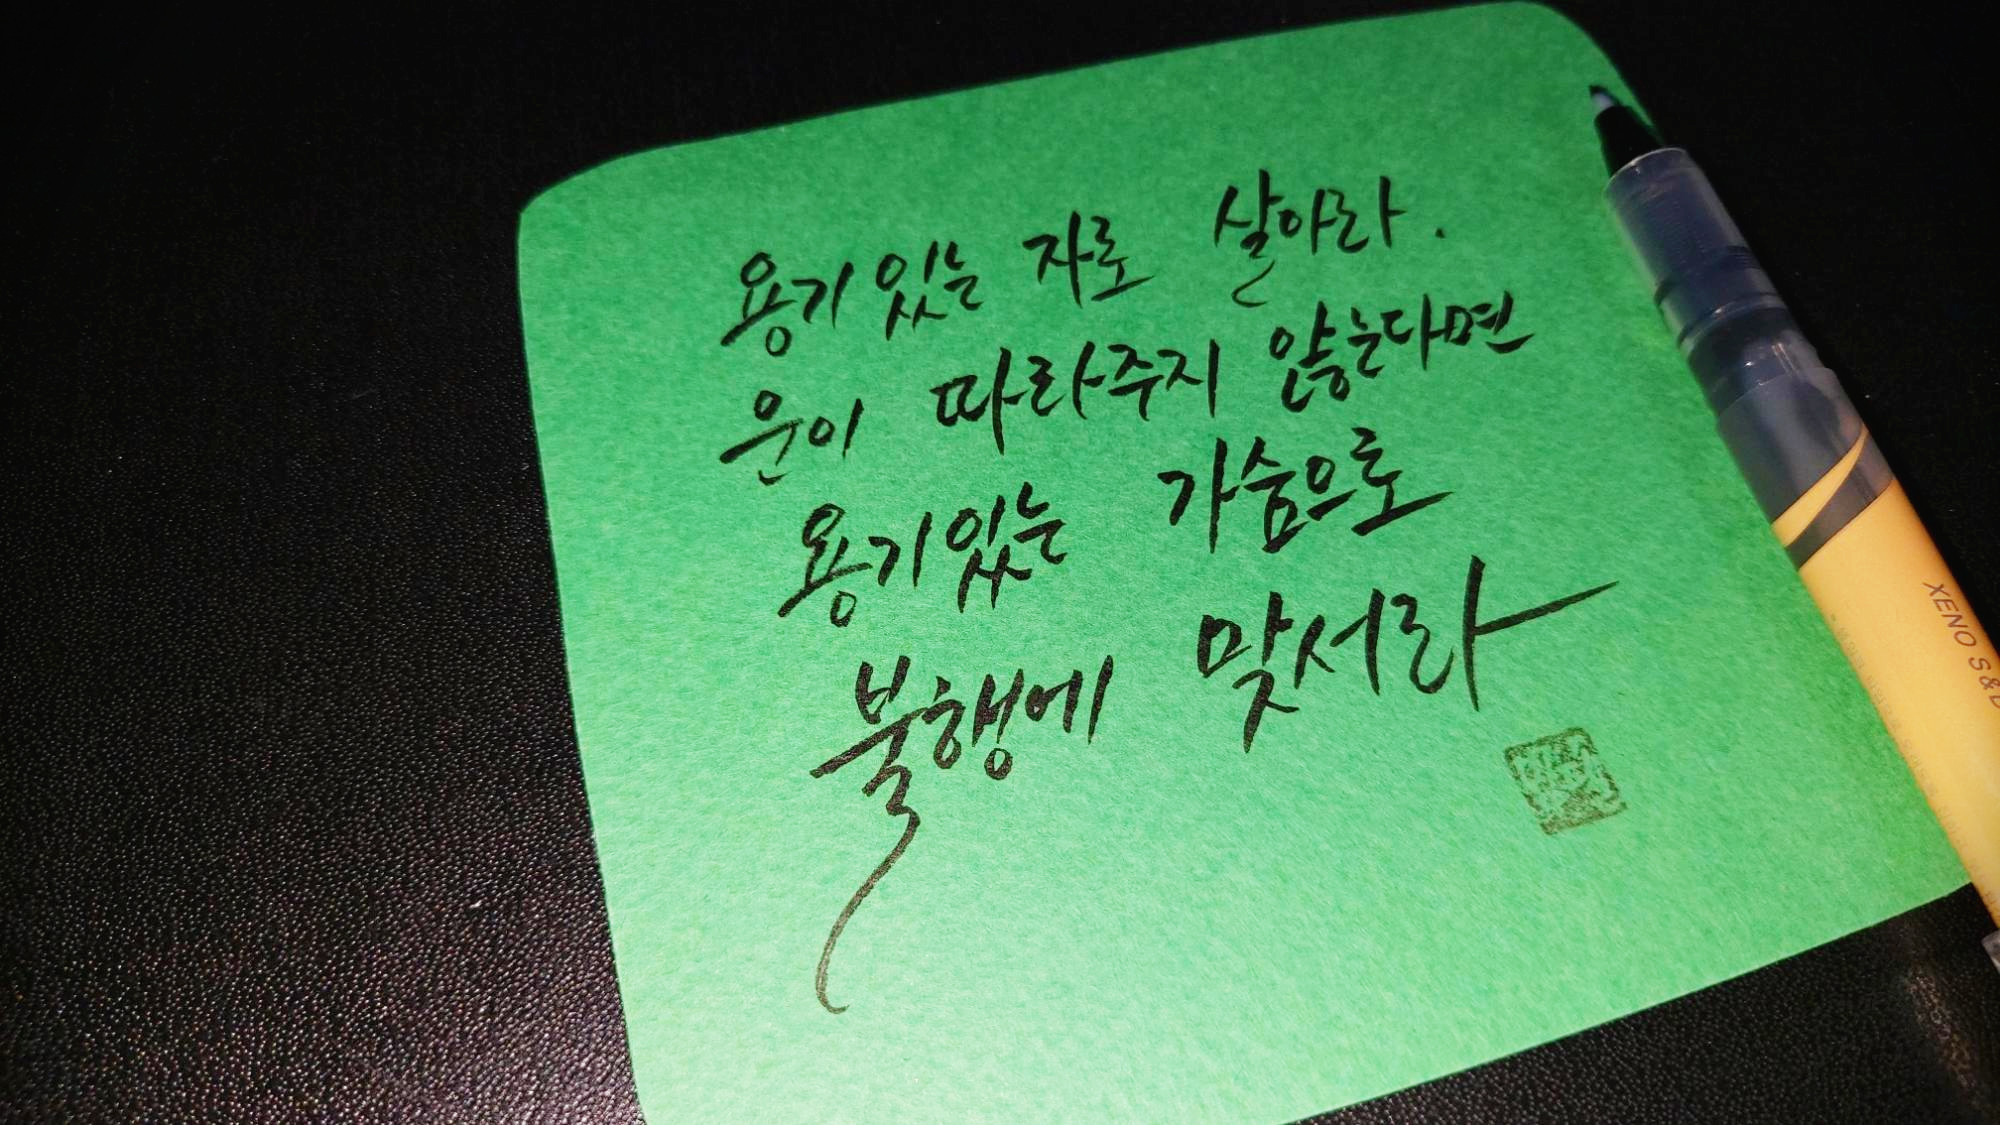 용기있는 자로 살아라.
운이 따라주지 않는다면
용기있는 가슴으로
불행에 맞서라
XENO S&D